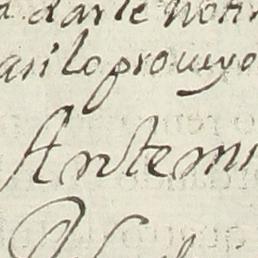 darle noti
asi lo proueyo
Antemi